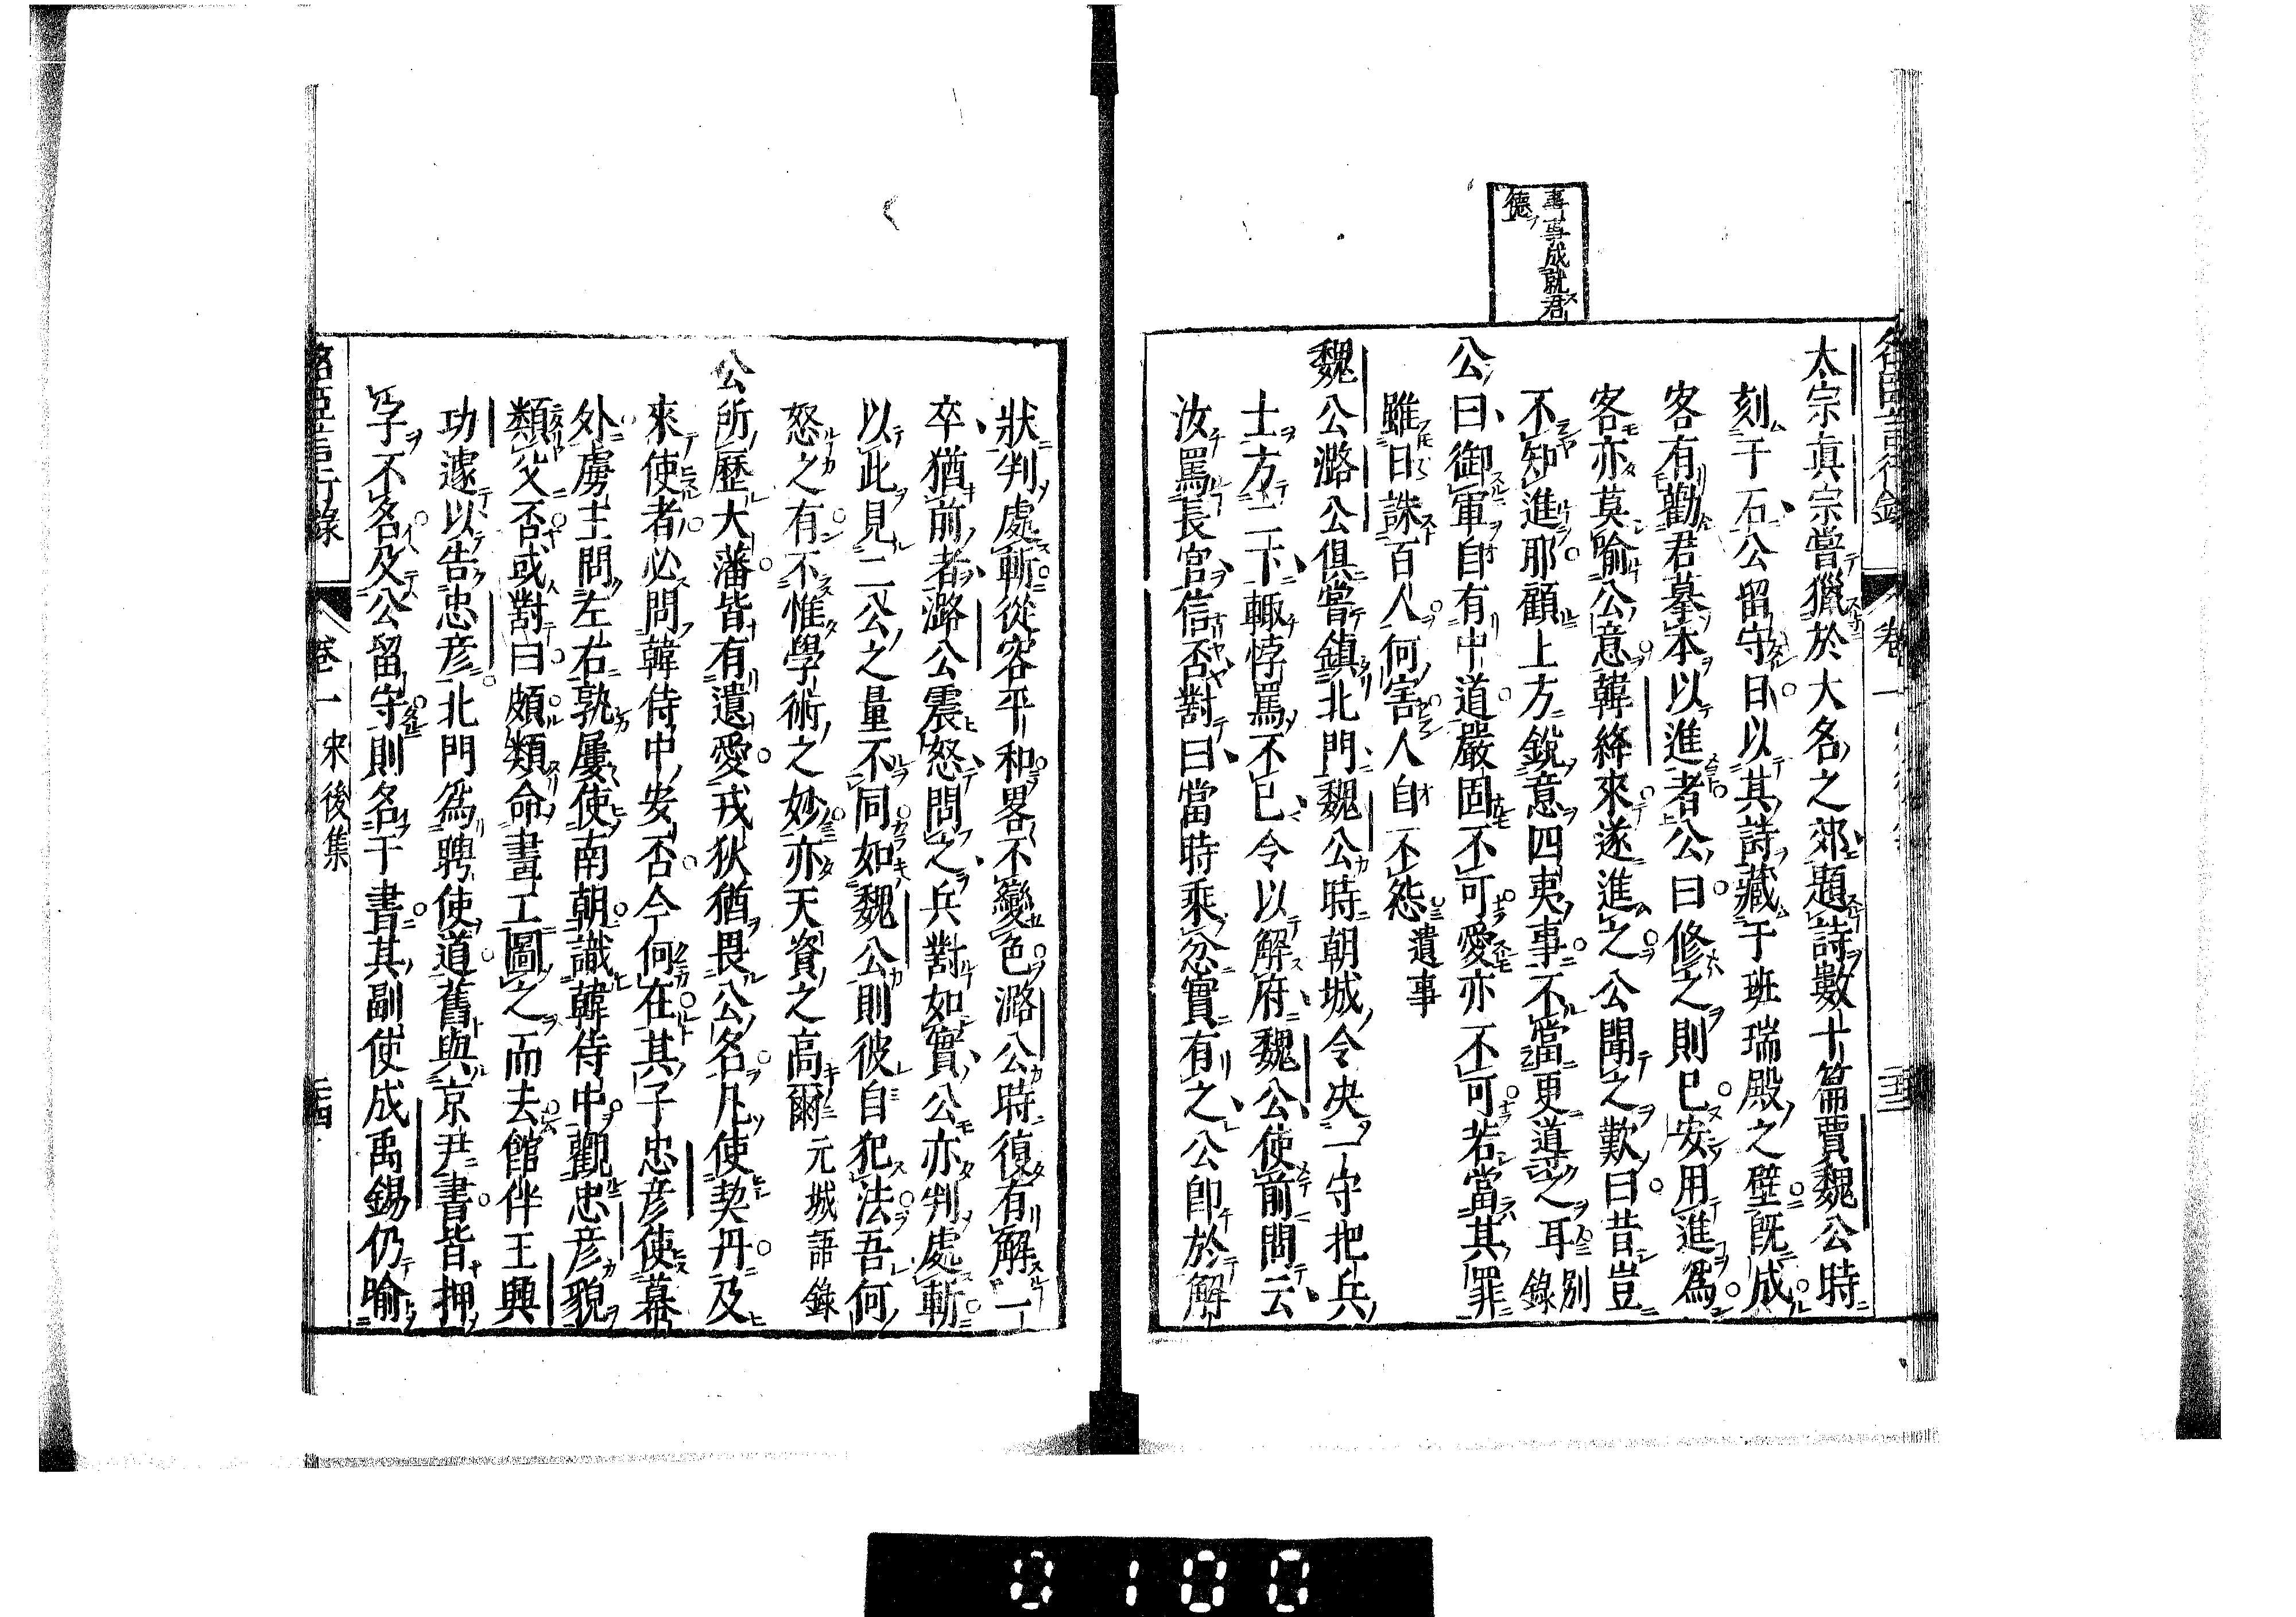 事事成就君
德
太宗眞宗嘗獵於大名之郊題詩數十篇賈魏公時
刻于石公留守日以其詩藏于班瑞殿之壁既成
客有勸君摹本以進者公曰修之則已安用進爲
客亦莫喻公意韓絳來遂進之公聞之歎曰昔豈
不知進耶顧上方銳意四夷事不當更導之耳別錄
公曰御軍自有中道嚴固不可愛亦不可若當其罪
雖日誅百人何害人自不怨遺事
魏公潞公俱嘗鎮北門魏公時朝城令决一守把兵
士方二下輙悖罵不已令以解府魏公使前問云
汝罵長官信否對曰當時乘忿實有之公卽於解
狀判處斬從容平和畧不變色潞公時復有解一
卒猶前者潞公震怒問之兵對如實公亦判處斬
以此見二公之量不同如魏公則彼自犯法吾何
怒之有不惟學術之妙亦天資之高爾元城語錄
公所歷大藩皆有遺愛戎狄猶畏公名凡使契丹及
來使者必問韓侍中安否今何在其子忠彦使幕
外虜主問左右孰屢使南朝識韓侍中觀忠彦貌
類父否或對曰頗類命畫工圖之而去館伴王興
功遽以告忠彦北門爲聘使道舊與京尹書皆押
字不名及公留守則名于書其副使成禹錫仍喻
名臣言行錄 卷一 宋後集 二十四
0100